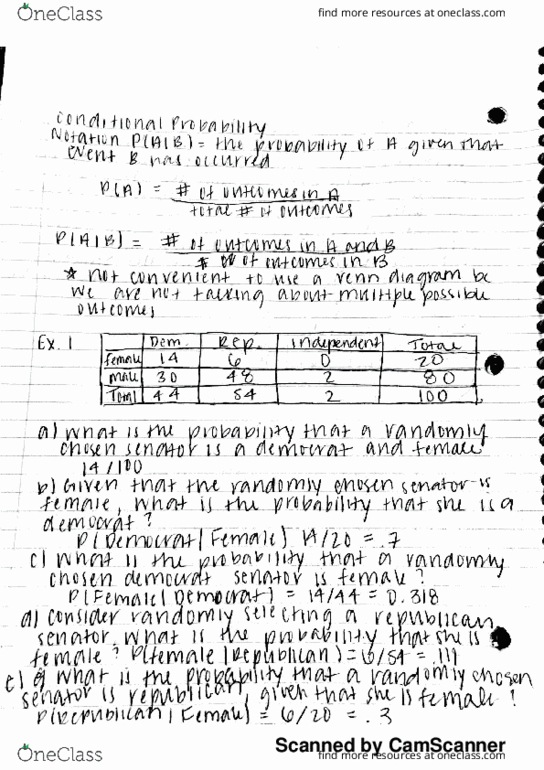 OneClass find more resources at oneclass.com
conditional Probability
Notation P(A|B) = the probability of A given that
event B has occurred
P(A) = # of outcomes in A
total # of outcomes
P(A|B) = # of outcomes in A and B
# of outcomes in B
* not convenient to use a venn diagram bc
we are not talking about multiple possible
outcomes
Ex. 1 Dem. Rep. independent Total
female 14 6 0 20
male 30 48 2 80
Total 44 54 2 100
a) What is the probability that a randomly
chosen senator is a democrat and female
14/100
b) Given that the randomly chosen senator is
female, what is the probability that she is a
democrat?
P(Democrat|Female) 14/20 = .7
c) What is the probability that a randomly
chosen democrat senator is female?
P(Female|Democrat) = 14/44 = 0.318
d) consider randomly selecting a republican
senator, what is the probability that she is
female? P(female|Republican) = 6/54 = .111
e) What is the probability that a randomly chosen
senator is republican, given that she is female?
P(Republican|Female) = 6/20 = .3
Scanned by CamScanner
OneClass find more resources at oneclass.com